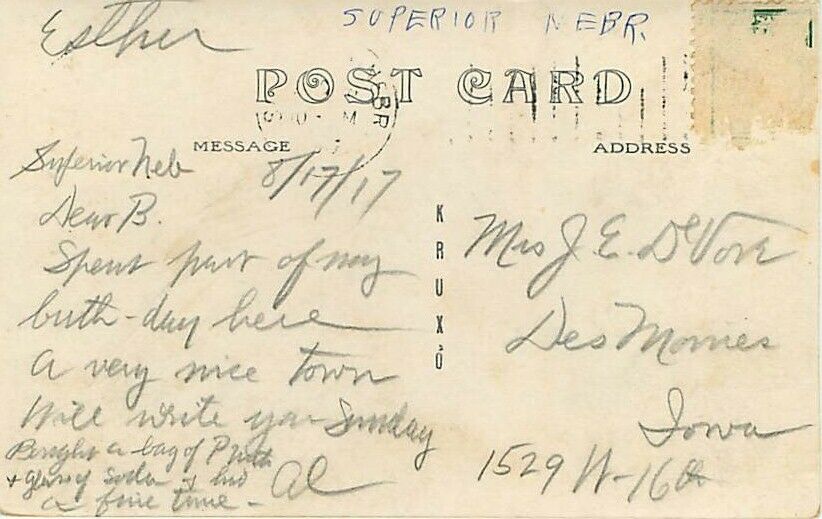 Esther
SUPERIOR NEBR.
POST CARD
MESSAGE
ADDRESS
Superior Neb 8/17/17
Dear B.
Spent part of my
birth-day here
A very nice town
Will write you Sunday
Bought a bag of
+ glass of soda & had
a fine time - Al
KRUXO
Mrs J. E. DeVore
Des Moines
Iowa
1529 W-16th